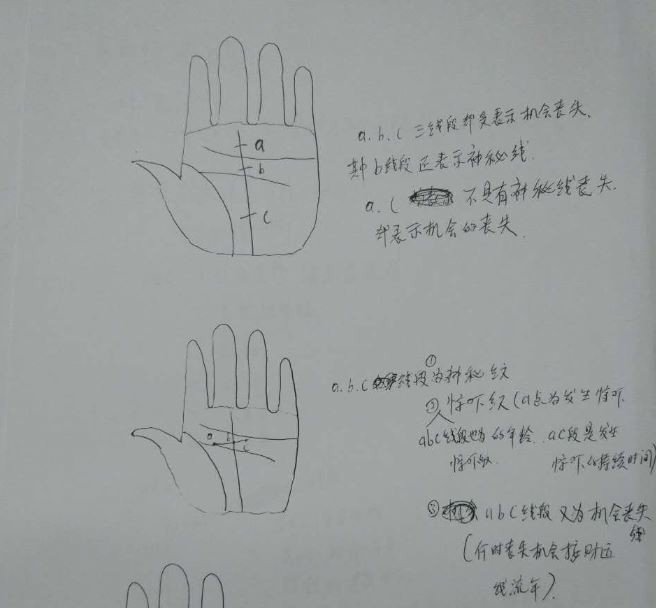 a
b
c
a.b.c 三线段都是表示机会丧失.
其中b线段还表示神秘线.
a.c 不具有神秘线丧失.
却表示机会的丧失.
a b c
a.b.c 线段为①神秘纹
②惊吓纹(a点为发生惊吓
abc线段也为 的年龄. ac段是发生
惊吓纹 惊吓的持续时间)
③ abc线段又为机会丧失
线
(何时丧失机会按财运
线流年).